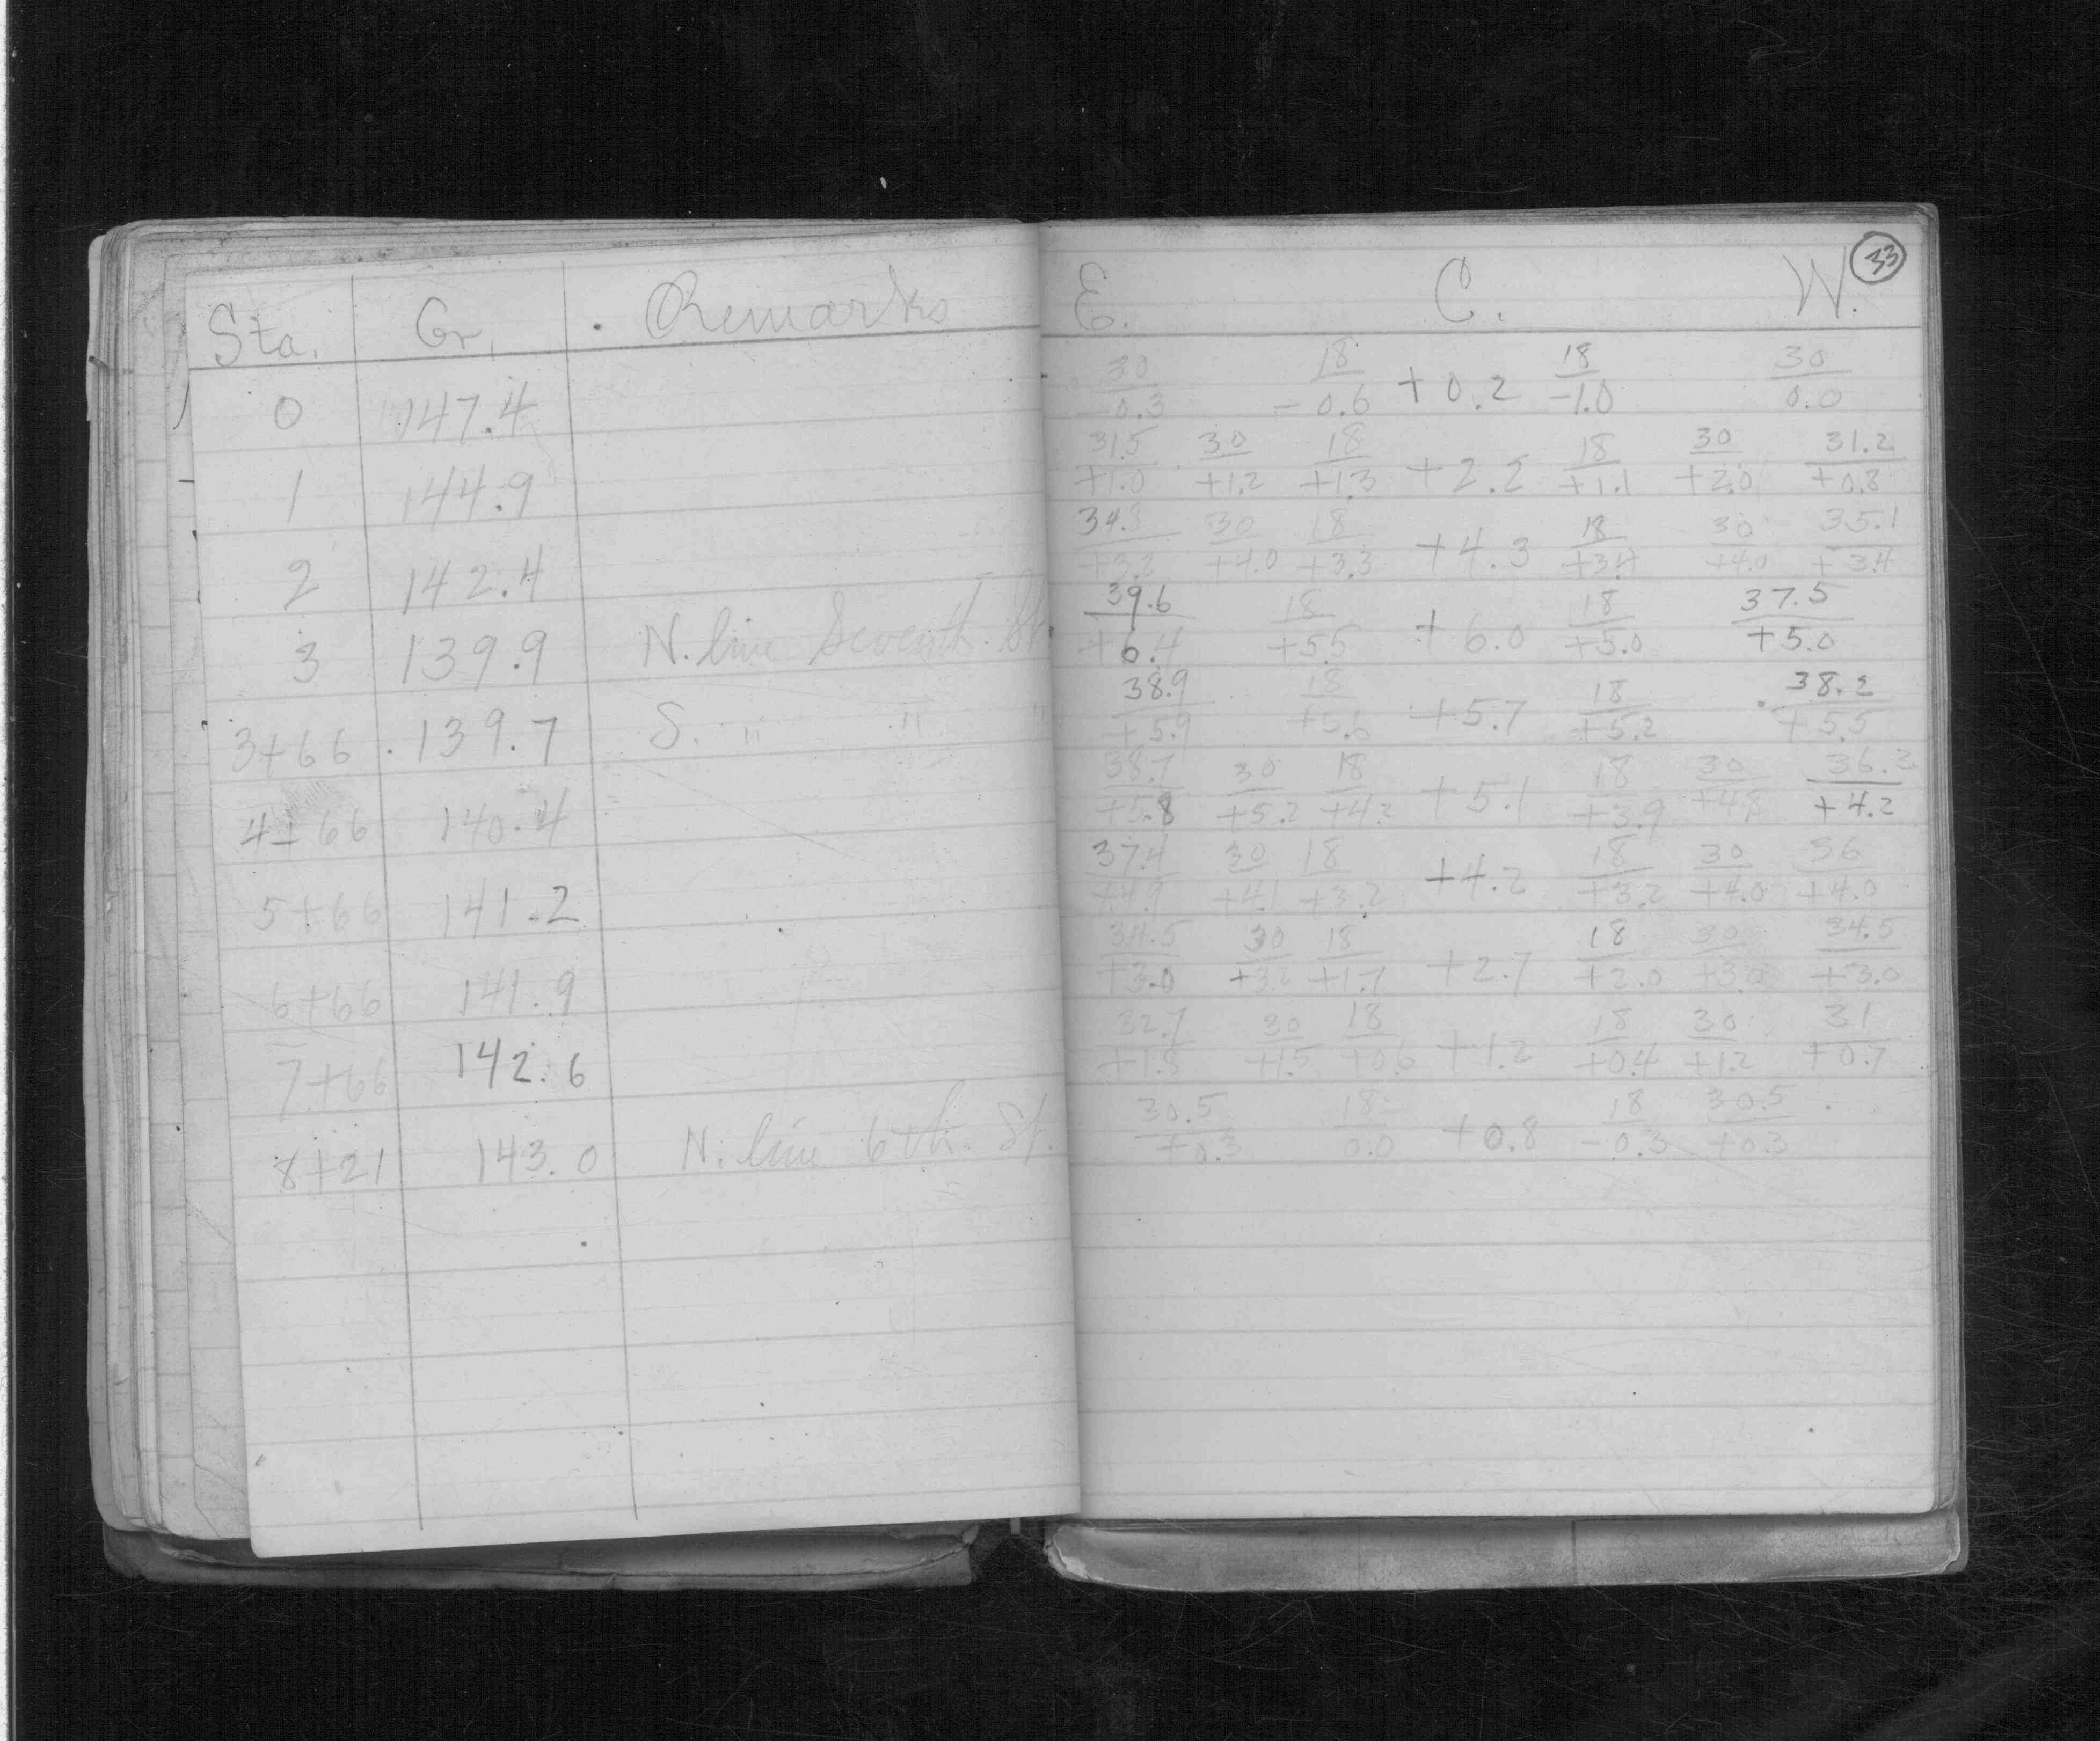 33
Sta. Gr. Remarks E. C. W.
0 147.4 30/-0.3 18/-0.6 +0.2 18/-1.0 30/0.0
1 144.9 31.5/+1.0 30/+1.2 18/+1.3 +2.2 18/+1.1 30/+2.0 31.2/+0.8
2 142.4 34.8/+3.2 30/+4.0 18/+3.3 +4.3 18/+3.4 30/+4.0 35.1/+3.4
3 139.9 N. line Seventh. St. 39.6/+6.4 18/+5.5 +6.0 18/+5.0 37.5/+5.0
3+66 139.7 S. " " " 38.9/+5.9 18/+5.6 +5.7 18/+5.2 38.2/+5.5
4+66 140.4 38.7/+5.8 30/+5.2 18/+4.2 +5.1 18/+3.9 30/+4.8 36.3/+4.2
5+66 141.2 37.4/+4.9 30/+4.1 18/+3.2 +4.2 18/+3.2 30/+4.0 36/+4.0
6+66 141.9 34.5/+3.0 30/ 18/+1.7 +2.7 18/+2.0 30/+3.0 34.5/+3.0
7+66 142.6 32.7/+1.8 30/+1.5 18/+0.6 +1.2 18/+0.4 30/+1.2 31/+0.7
8+21 143.0 N. line 6th. St. 30.5/+0.3 18/0.0 +0.8 18/-0.3 30.5/+0.3